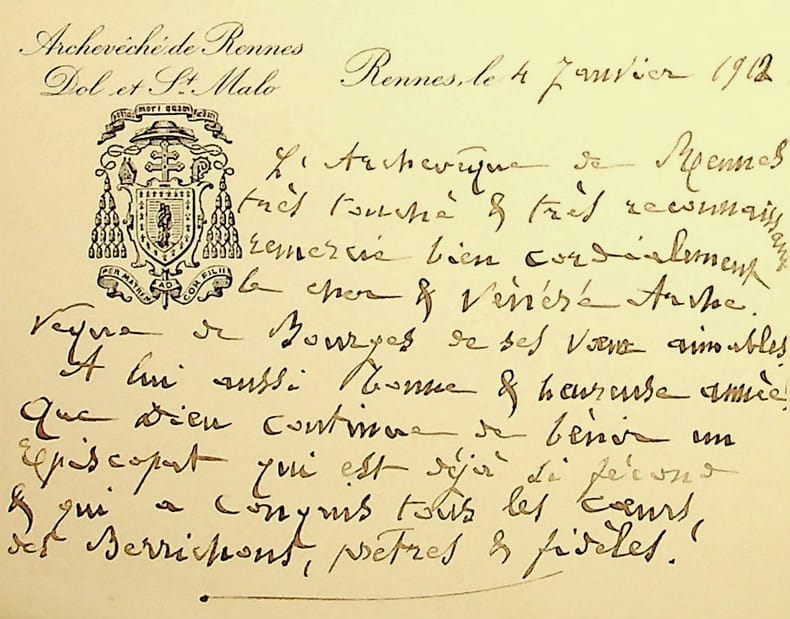 Archevêché de Rennes
Dol et St Malo
Rennes, le 4 Janvier 1912
potius mori quam fœdari
PER MATREM AD COR FILII
L'Archevêque de Rennes
très touché & très reconnaissant
remercie bien cordialement
le cher & vénéré Arche-
vêque de Bourges de ses vœux aimables.
A lui aussi bonne & heureuse année!
Que Dieu continue de bénir un
Episcopat qui est déjà si fécond
& qui a conquis tous les cœurs,
des Berrichons, prêtres & fidèles!